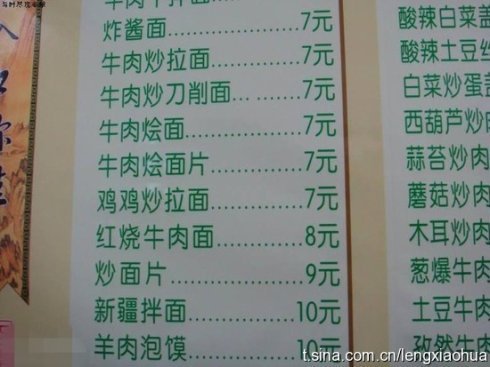 炸酱面...............7元
牛肉炒拉面..........7元
牛肉炒刀削面... .......7元
牛肉烩面.............7元
牛肉烩面片..........7元
鸡鸡炒拉面..........7元
红烧牛肉面..........8元
炒面片................9元
新疆拌面............10元
羊肉泡馍............10元
酸辣白菜盖
酸辣土豆丝
白菜炒蛋盖
西葫芦炒肉
蒜苔炒肉
蘑菇炒肉
木耳炒肉
葱爆牛肉
土豆牛肉
孜然牛肉
t.sina.com.cn/lengxiaohua